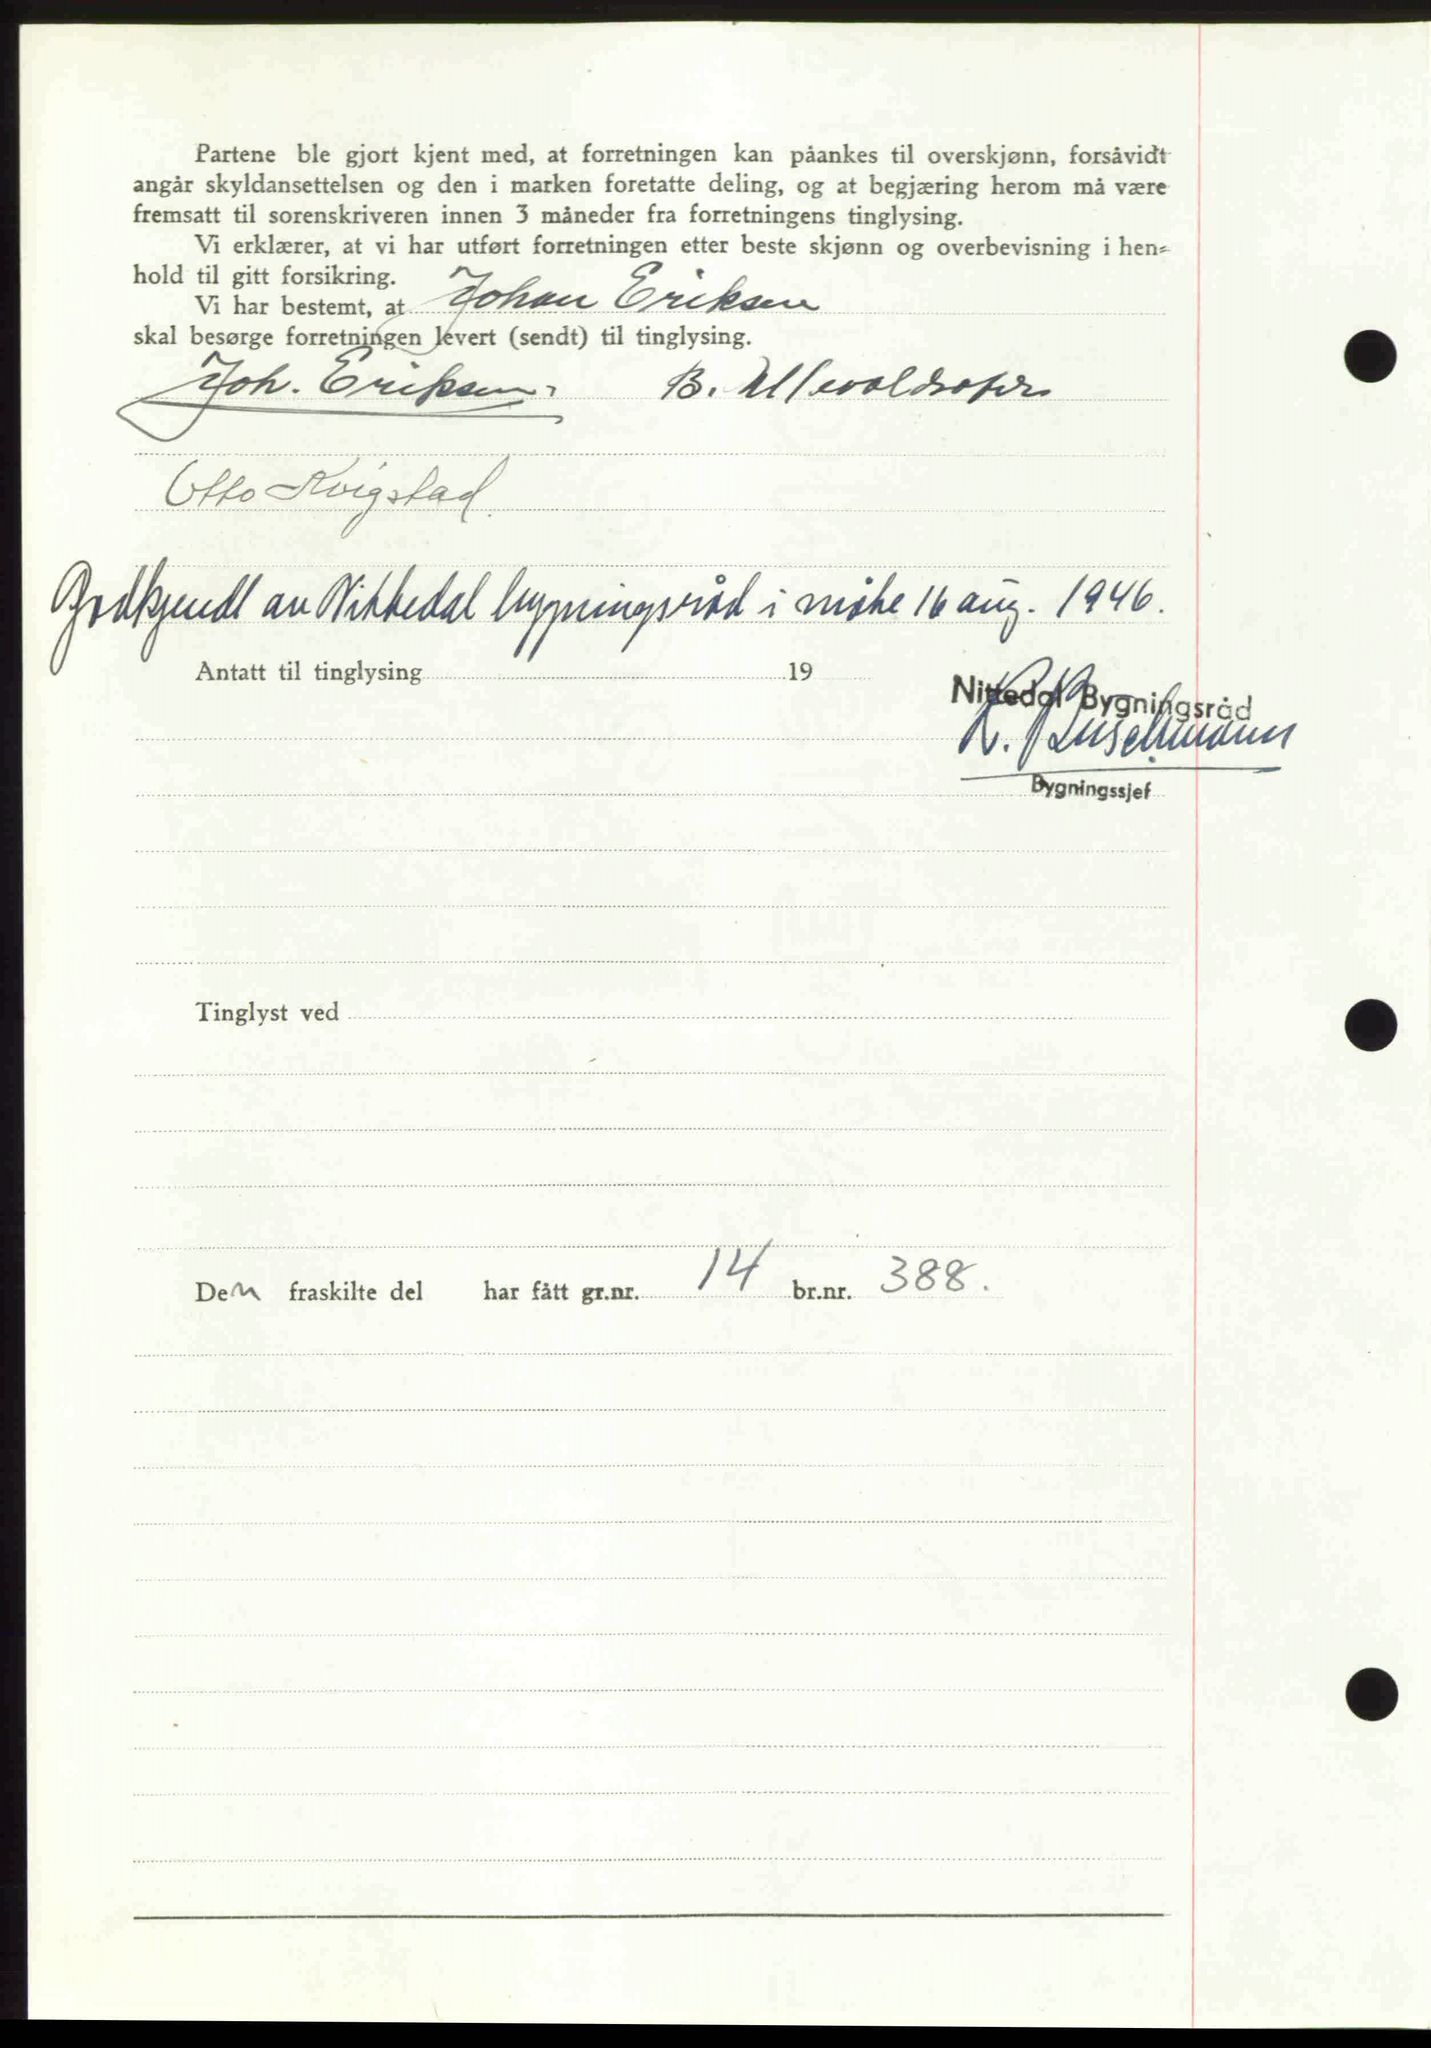 Partene ble gjort kjent med, at forretningen kan påankes til overskjønn, forsåvidt
angår skyldansettelsen og den i marken foretatte deling, og at begjæring herom må være
fremsatt til sorenskriveren innen 3 måneder fra forretningens tinglysing.
Vi erklærer, at vi har utført forretningen etter beste skjønn og overbevisning i hen-
hold til gitt forsikring.
Vi har bestemt, at Johan Eriksen
skal besørge forretningen levert (sendt) til tinglysing.
Joh. Eriksen. B.
Otto Kvigstad.
Godkjendt av Nittedal bygningsråd i møte 16 aug. 1946.
Antatt til tinglysing 19
Nittedal Bygningsråd
R. Buschmann
Bygningssjef
Tinglyst ved
Den fraskilte del har fått gr.nr. 14 br.nr. 388.